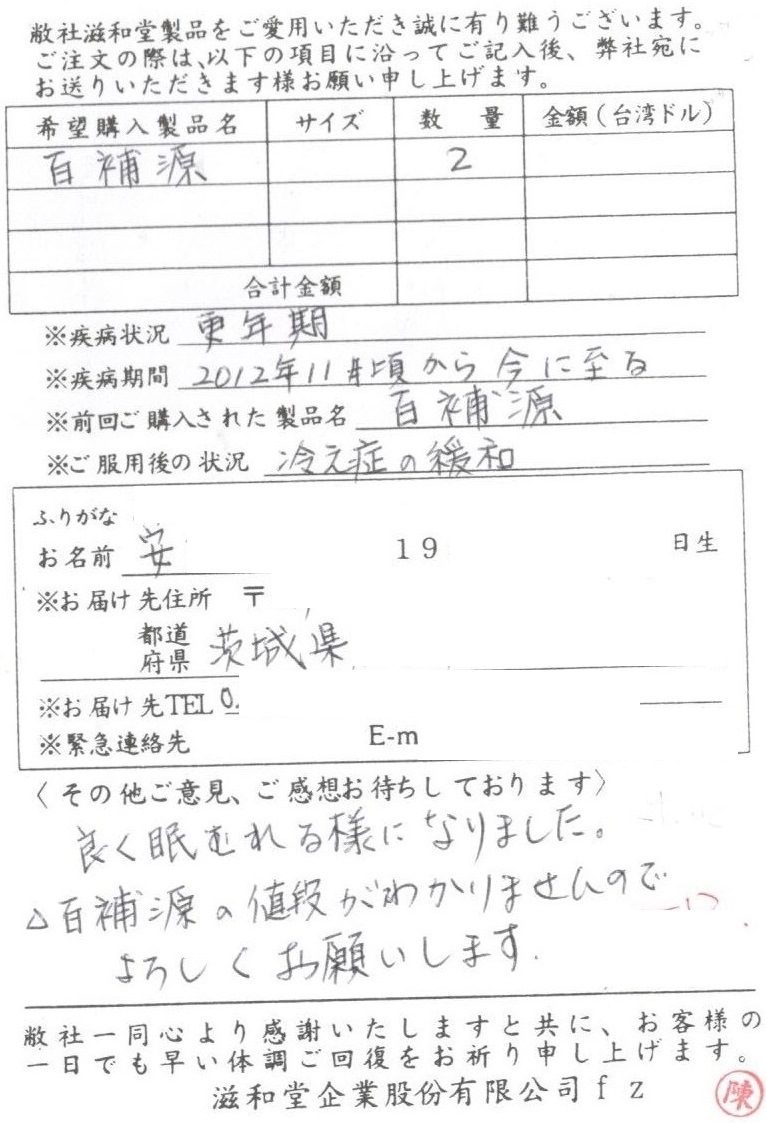 敝社滋和堂製品をご愛用いただき誠に有り難うございます。
ご注文の際は、以下の項目に沿ってご記入後、弊社宛に
お送りいただきます様お願い申し上げます。
希望購入製品名 サイズ 数量 金額(台湾ドル)
百補源 2
合計金額
※疾病状況 更年期
※疾病期間 2012年11月頃から今に至る
※前回ご購入された製品名 百補源
※ご服用後の状況 冷え症の緩和
ふりがな
お名前 安 19 日生
※お届け先住所 〒
都道府県 茨城県
※お届け先TEL 0
※緊急連絡先 E-m
〈その他ご意見、ご感想お待ちしております〉
良く眠むれる様になりました。
△百補源の値段がわかりませんので
よろしくお願いします.
敝社一同心より感謝いたしますと共に、お客様の
一日でも早い体調ご回復をお祈り申し上げます。
滋和堂企業股份有限公司 f z
陳